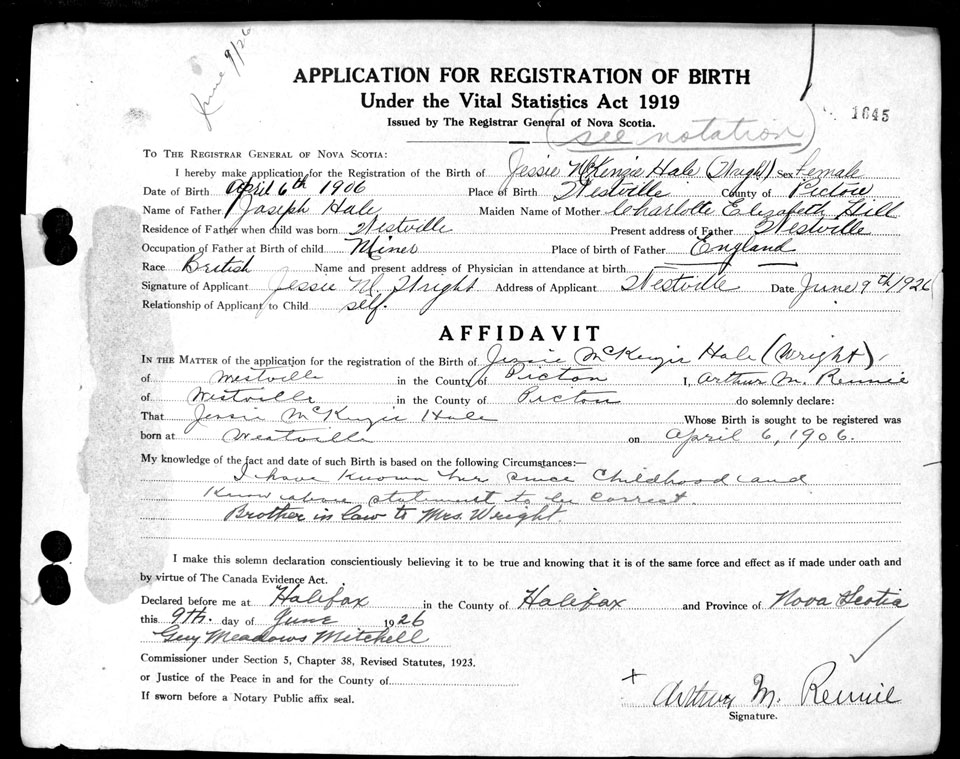 June 9/26
APPLICATION FOR REGISTRATION OF BIRTH
Under the Vital Statistics Act 1919
Issued by The Registrar General of Nova Scotia.
1645
(see notation)
TO THE REGISTRAR GENERAL OF NOVA SCOTIA:
I hereby make application for the Registration of the Birth of Jessie McKenzie Hale (Wright) Sex Female
Date of Birth April 6th 1906 Place of Birth Westville County of Pictou
Name of Father Joseph Hale Maiden Name of Mother Charlotte Elizabeth Hill
Residence of Father when child was born Westville Present address of Father Westville
Occupation of Father at Birth of child Miner Place of birth of Father England
Race British Name and present address of Physician in attendance at birth
Signature of Applicant Jessie M. Wright Address of Applicant Westville Date June 9th 1926
Relationship of Applicant to Child self.
AFFIDAVIT
IN THE MATTER of the application for the registration of the Birth of Jessie McKenzie Hale (Wright)
of Westville in the County of Picton I, Arthur M. Rennie
of Westville in the County of Picton do solemnly declare:
That Jessie McKenzie Hale Whose Birth is sought to be registered was
born at Westville on April 6, 1906.
My knowledge of the fact and date of such Birth is based on the following Circumstances:—
I have known her since childhood and
know above statement to be correct.
Brother in law to Mrs. Wright.
I make this solemn declaration conscientiously believing it to be true and knowing that it is of the same force and effect as if made under oath and
by virtue of The Canada Evidence Act.
Declared before me at Halifax in the County of Halifax and Province of Nova Scotia
this 9th. day of June 1926
Guy Meadows Mitchell
Commissioner under Section 5, Chapter 38, Revised Statutes, 1923.
or Justice of the Peace in and for the County of
If sworn before a Notary Public affix seal.
+ Arthur M. Rennie
Signature.